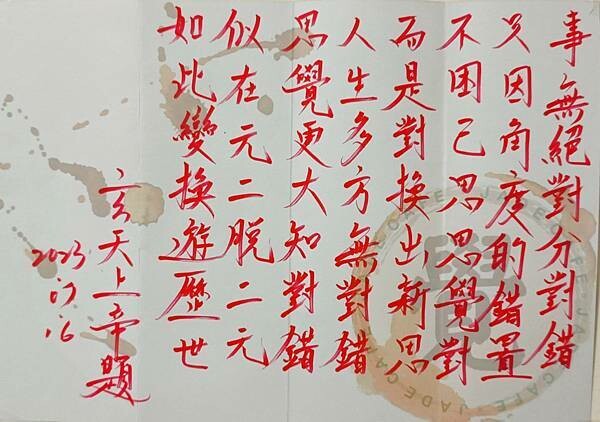 事無絕對分對錯
只因角度的錯置
不困己思思覺對
而是對換出新思
人生多方無對錯
思覺更大知對錯
似在元二脫二元
如此變換遊歷世
玄天上帝題
2023
07
16
覺
JADE CAFE